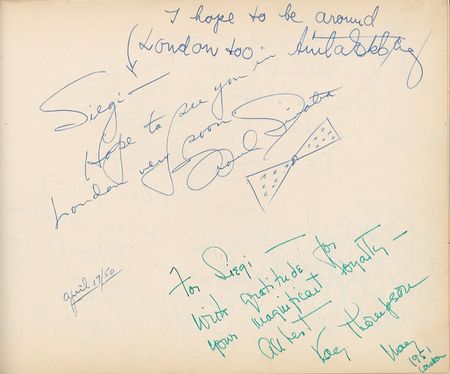 I hope to be around
London too Anita
Siegi —
Hope to see you in
London very soon
Frank Sinatra
april 17/50
For Siegi —
With gratitude for
your magnificent loyalty —
All best
Kay Thompson
May
1951
London